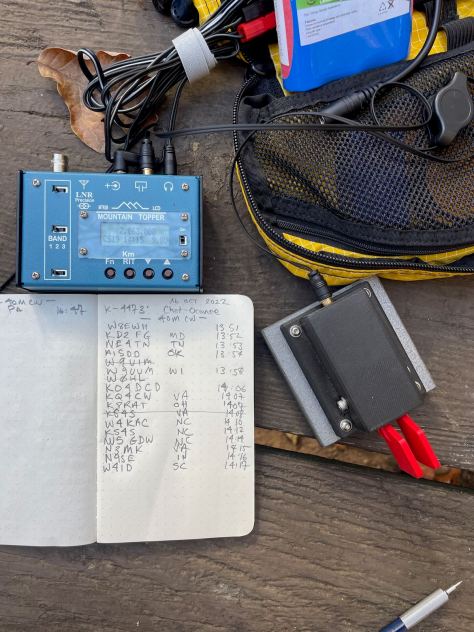 LNR
Precision
MOUNTAIN TOPPER
LCD
BAND
1 2 3
Km
Fn RIT
40M CW
PA 16:47
K-4473
16 OCT 2022
Chat-Oconee
40M CW
W8EWH 13:51
KD2FG MD 13:52
NE4TN TN 13:53
AI5DD OK 13:54
W9UIM
W9UUM WI 13:58
W8HL
KO4DCD 14:06
KQ4CW VA 1407
K8RAT OH 1409
VA
W4KAC NC 1410
KS4S NC 1412
W5GDW NC 1414
N8MK VA 1415
N9SE IN 1416
W4ID SC 1417